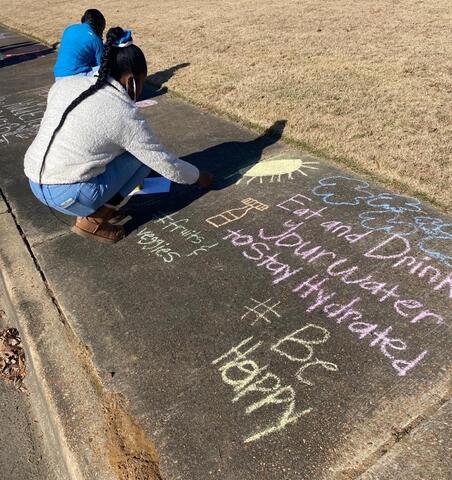 Eat and Drink
your Water
to Stay Hydrated
#fruits &
veggies
#
Be
Happy